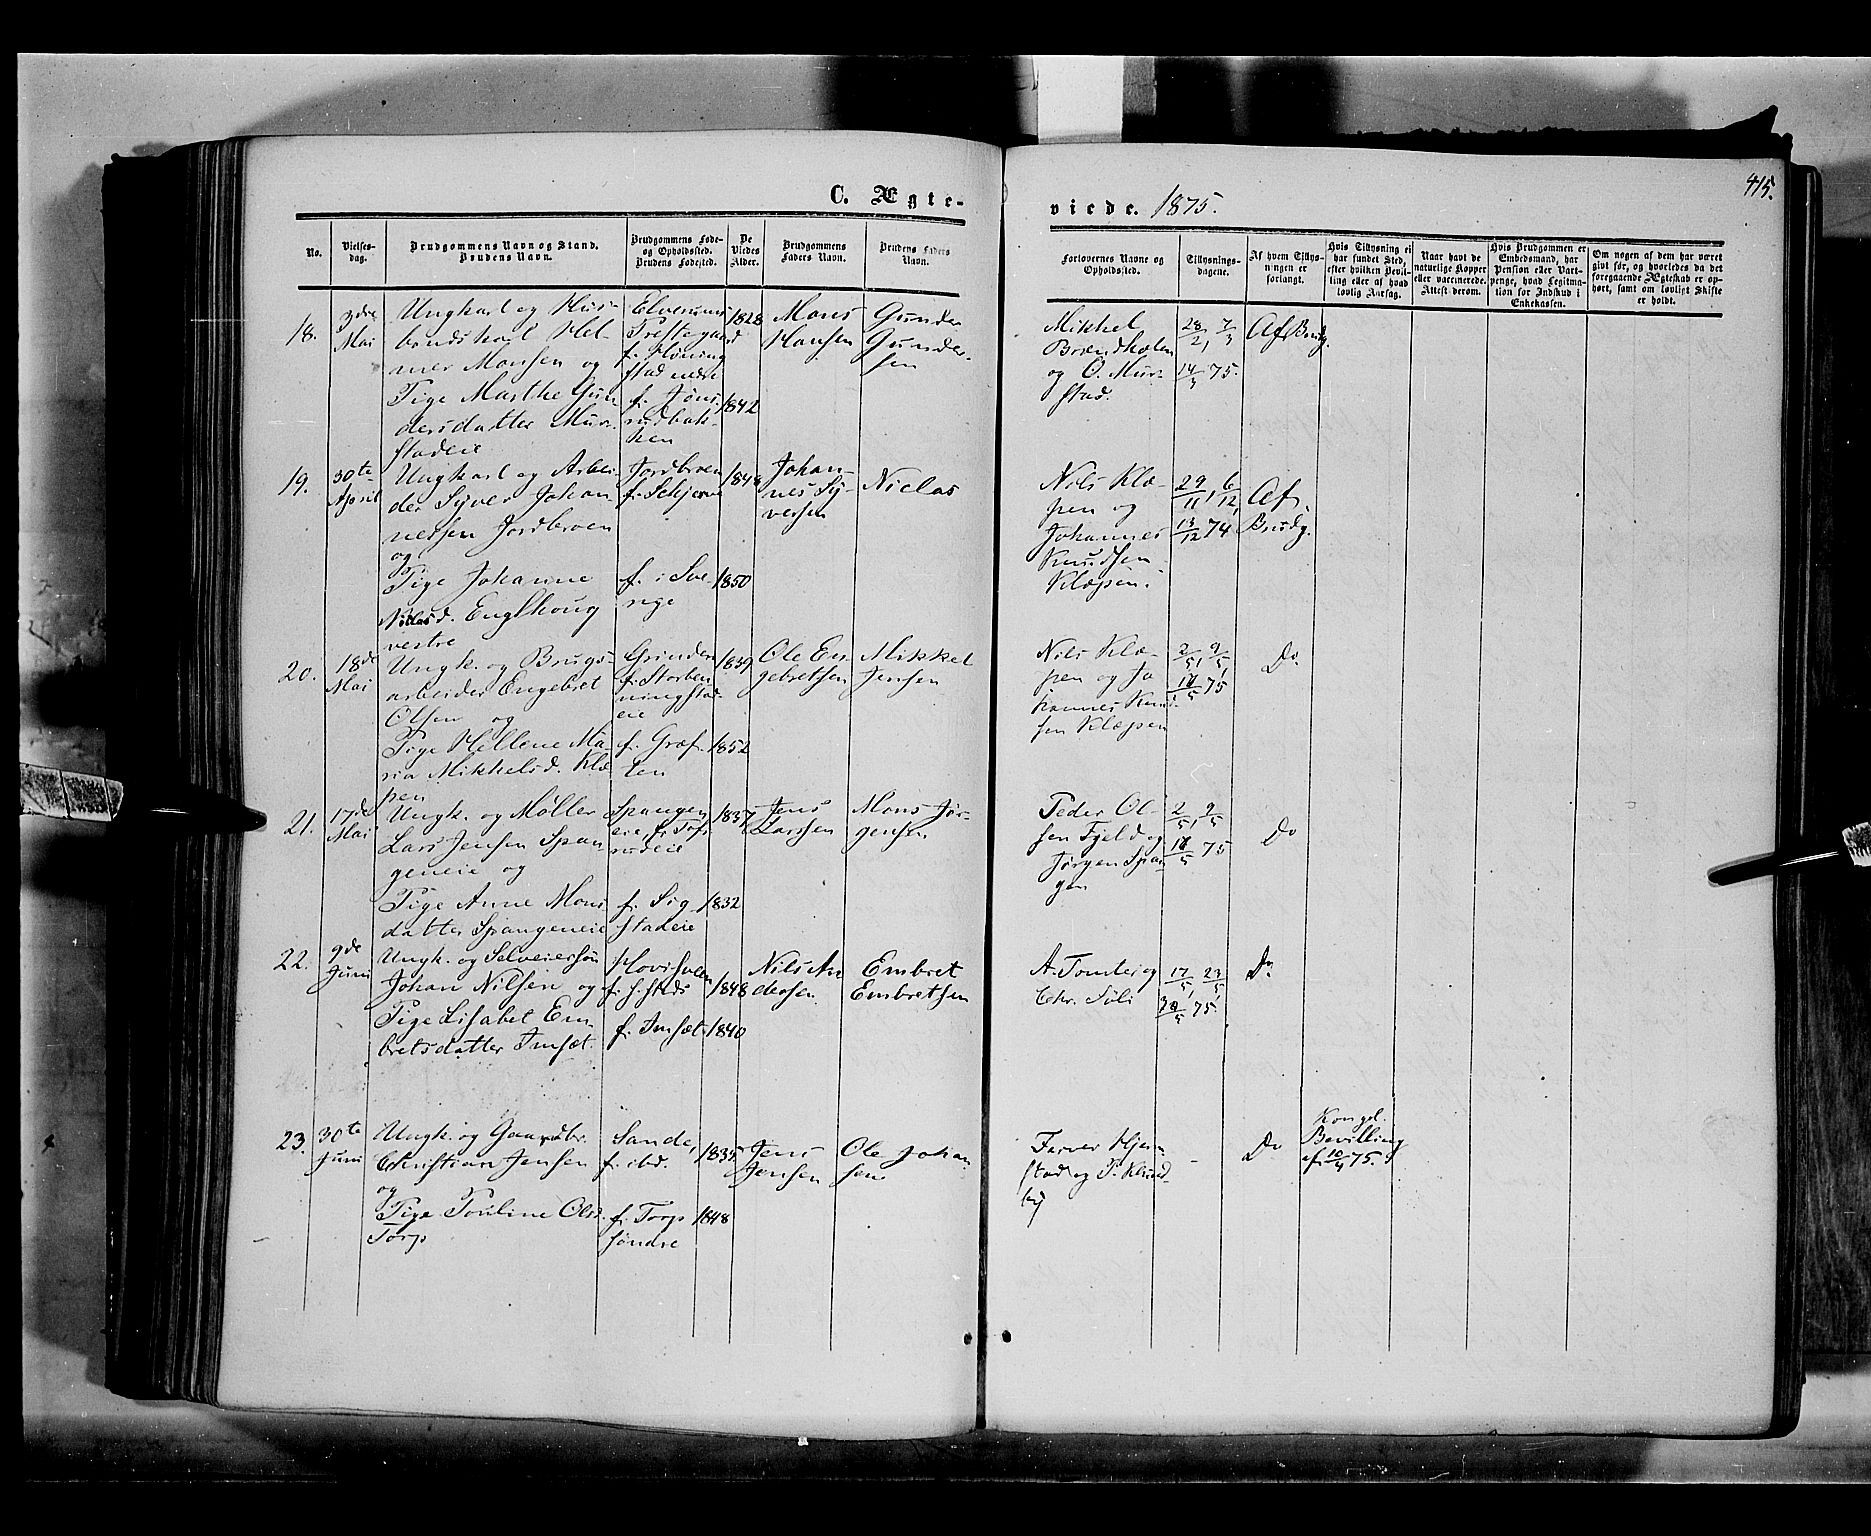 C. Ægte-
viede. 1875.
415.
No.
Vielses-
dag.
Brudgommens Navn og Stand.
Brudens Navn.
Brudgommens Føde-
og Opholdssted.
Brudens Fødested.
De
Viedes
Alder.
Brudgommens
Faders Navn.
Brudens Faders
Navn.
Forlovernes Navne og
Opholdssted.
Tillysnings-
dagene.
Af hvem Tillys-
ningen er
forlangt.
Hvis Tillysning ei
har fundet Sted,
efter hvilken Bevil-
ling eller af hvad
lovlig Aarsag.
Naar havt de
naturlige Kopper
eller vaccinerede.
Attest derom.
Hvis Brudgommen er
Embedsmand, har
Pension eller Vart-
penge, hvad Legitima-
tion for Indskud i
Enkekassen.
Om nogen af dem har været
givt før, og hvorledes da det
foregaaende Ægteskab er op-
hørt, samt om lovligt Skifte
er holdt.
18.
3die
Mai
Ungkarl og Hus-
bondskarl Hel-
mer Monsen og
Tige Marthe Gun
dersdatter Mur-
stadeie
Elverums
Prestegaard
f. Høning
stad nedre
f. Jøns-
rudbak-
ken
1828
1842
Mons
Hansen
Gunder
Gunder-
sen
Mikkel
Brændholen
og O. Mur-
stad.
28/2, 7/3
14/3 75.
Af Brudg.
19.
30te
April
Ungkarl og Arbei-
der Syver Johan
nessen Jordbroen
og
Pige Johanne
Niclasd. Englhoug
vestre
Jordbroen
f. Schjerve
f. i Sve-
rige
1848
1850
Johan-
nes Sy-
versen
Niclas
Nils Klæ-
pen og
Johannes
Knudsen
Klæpen.
29/11, 6/12,
13/12 74
Af
Brudg.
20.
18de
Mai
Ungk. og Brugs-
arbeider Engebret
Olsen og
Pige Hellene Ma-
ria Mikkelsd. Klæ
pen
Grinder
f. Storben
ningstad-
eie
f. Græf-
ten
1839
1852
Ole En-
gebretsen
Mikkel
Jensen
Nils Klæ-
pen og Jo
hannes Knud-
sen Klæpen
2/5, 9/5,
17/5 75
Do.
21.
17de
Mai
Ungk. og Møller
Lars Jensen Span-
geneie og
Pige Anne Mons
datter Spangeneie
Spangen
eie, f. Tøps
rudeie
f. Sig-
stadeie
1837
1832
Jens
Larssen
Mons Jør-
gensen
Peder Ol-
sen Fjeld og
Jørgen Span
gen
2/5, 9/5
17/5 75
Do
22.
9de
Juni
Ungk. og Selveiersøn
Johan Nilsen og
Pige Lisabet Em-
bretsdatter Imsæt.
Hovisveen
f. s. steds
f. Imsæt.
1848
1840
Nils An
dersen
Embret
Embretsen
A. Tomter og
Chr. Sæli
17/5, 23/5,
30/5 75.
Do.
23.
30te
Juni
Ungk. og Gaardbr.
Christian Jensen
og
Pige Pouline Olsd.
Torp
Sande,
f. ibd.
f. Torp
søndre
1835
1848
Jens
Jensen
Ole Johan-
sen
Farver Hjem-
stad og P. Klund-
by
-
Do
Kongel.
Bevilling
af 10/4 75.